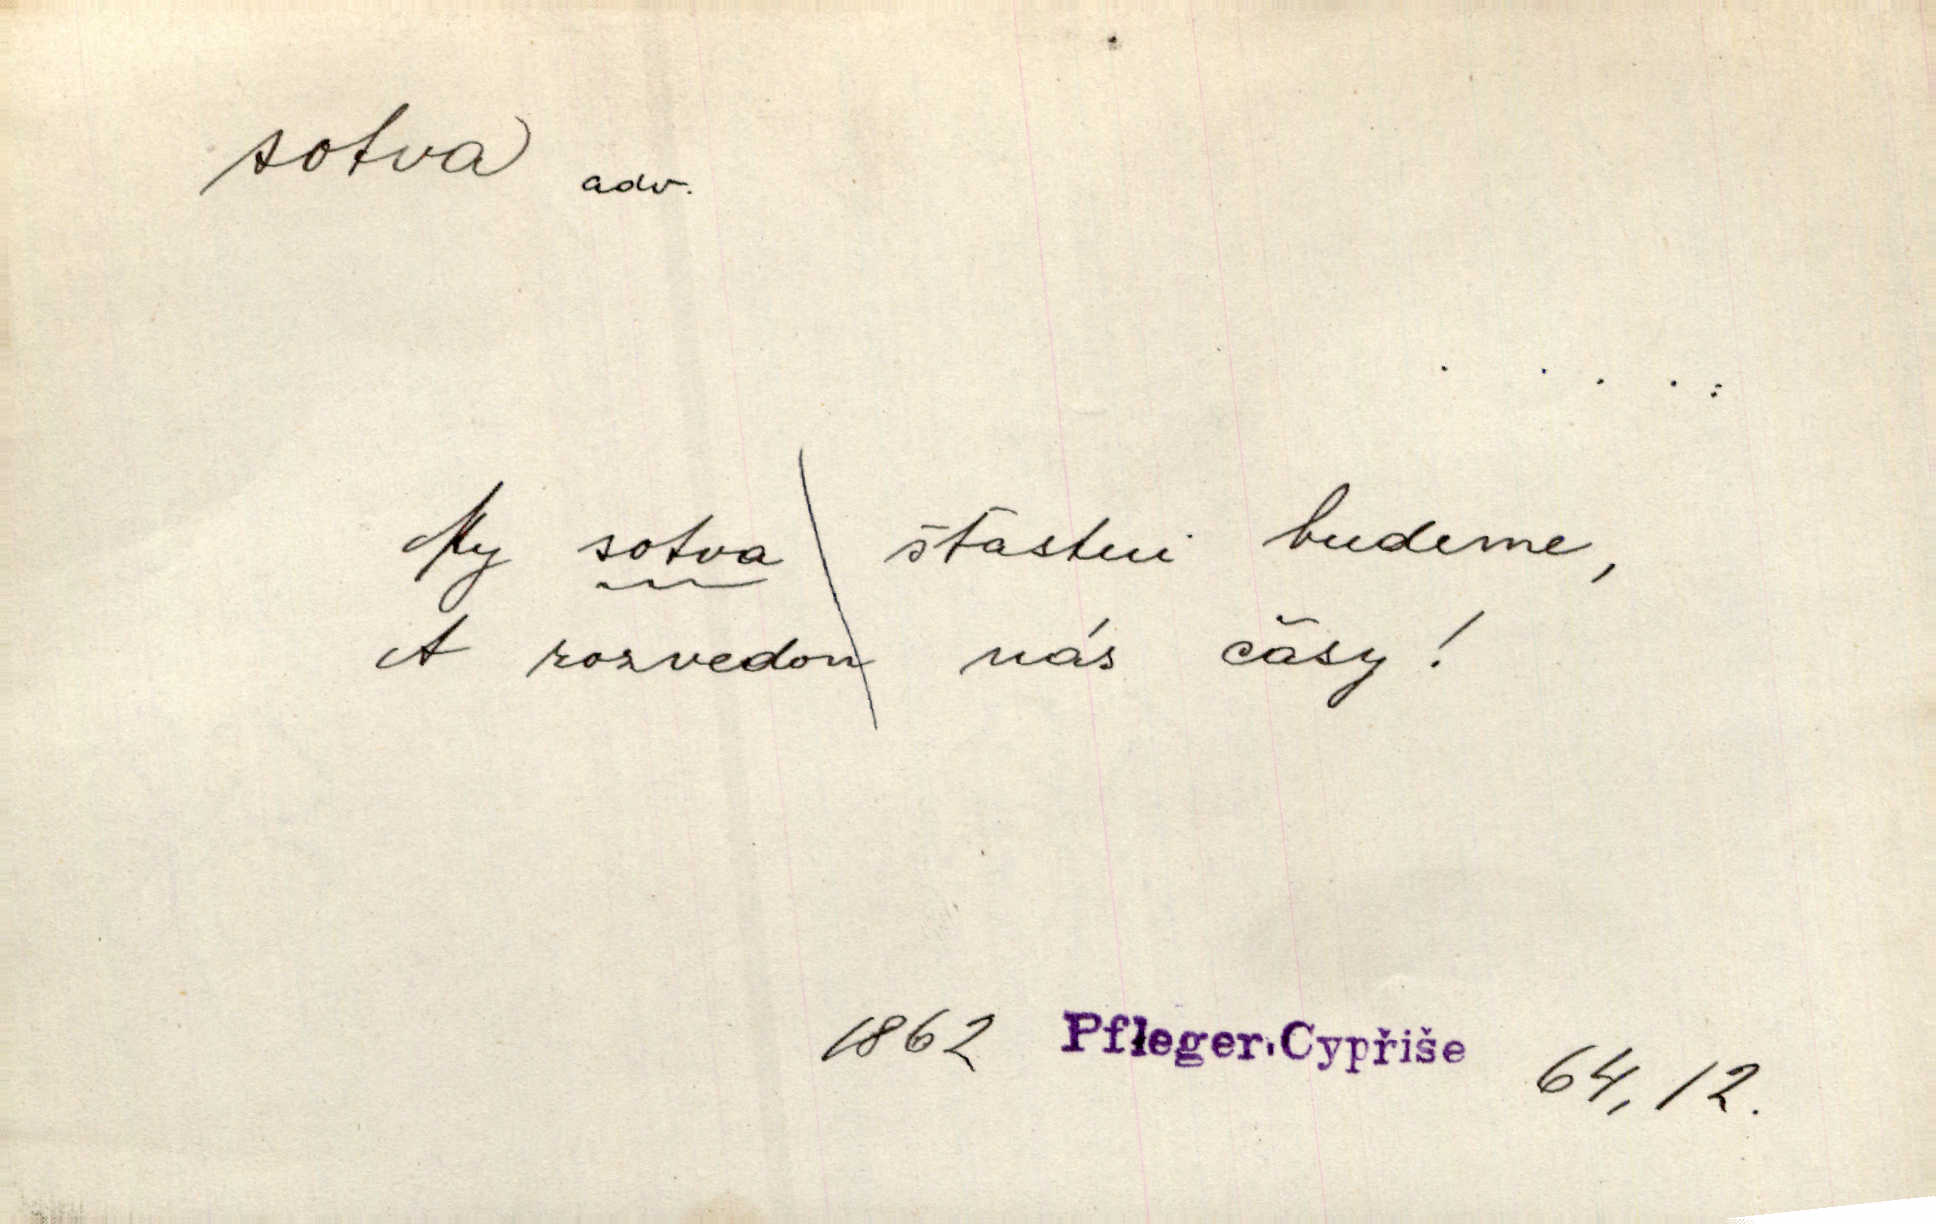 sotva adv.
My sotva šťastni budeme,
A rozvedou nás časy!
1862 Pfleger, Cypřiše 64, 12.